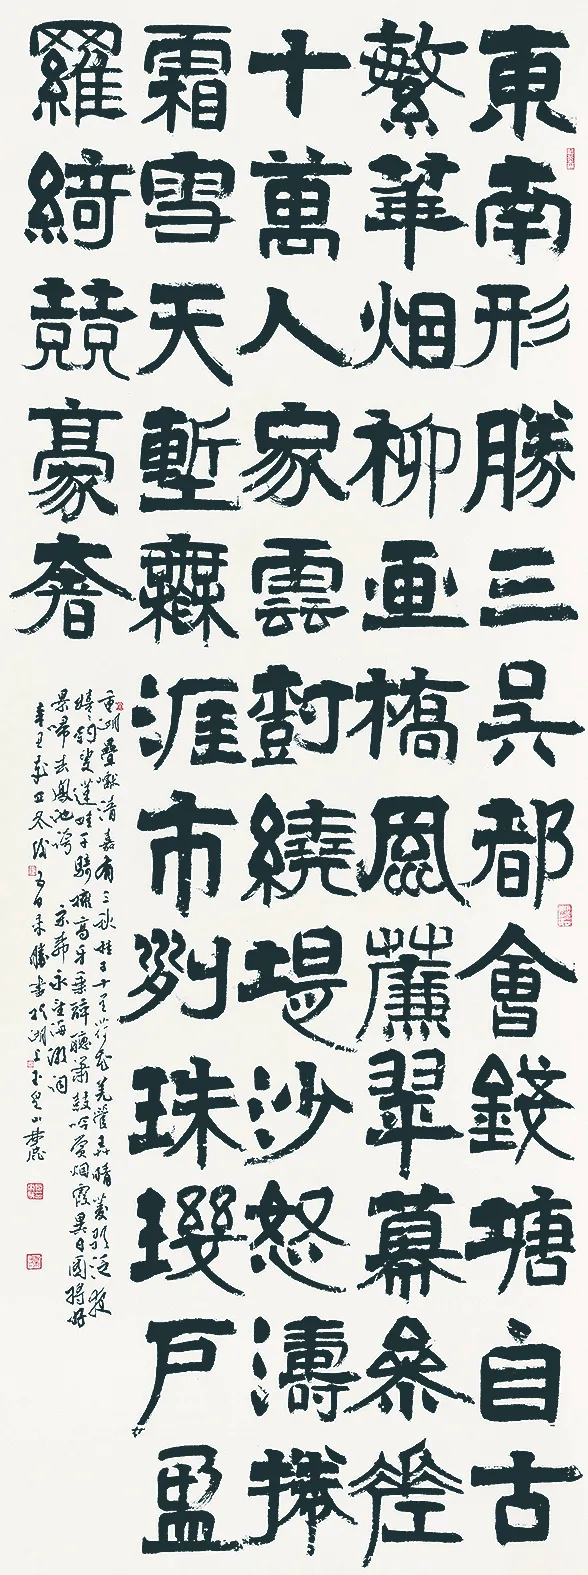 東南形勝三吳都會錢塘自古
繁華烟柳画橋風簾翠幕參差
十萬人家雲樹繞堤沙怒濤捲
霜雪天塹無涯市列珠璣戶盈
羅綺競豪奢
重湖疊巘清嘉有三秋桂子十里荷花羌管弄晴菱歌泛夜
嬉嬉釣叟蓮娃千騎擁高牙乘醉聽簫鼓吟賞烟霞異日圖將好
景歸去鳳池誇 宋 柳永望海潮詞
辛丑 冬 五日 書於湖上 山麓